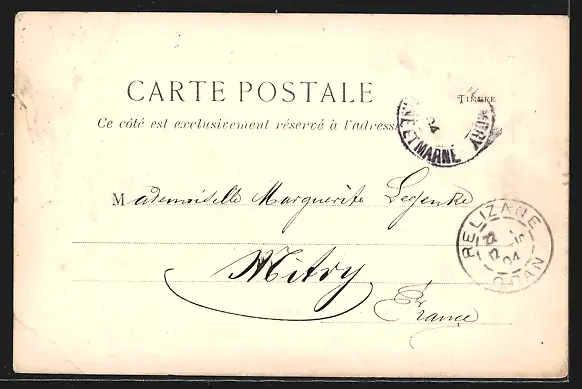 CARTE POSTALE
TIMBRE
Ce côté est exclusivement réservé à l'adresse
ET MARNE
04
Mademoiselle Marguerite
RELIZANE
22
04
ORAN
Mitry
France